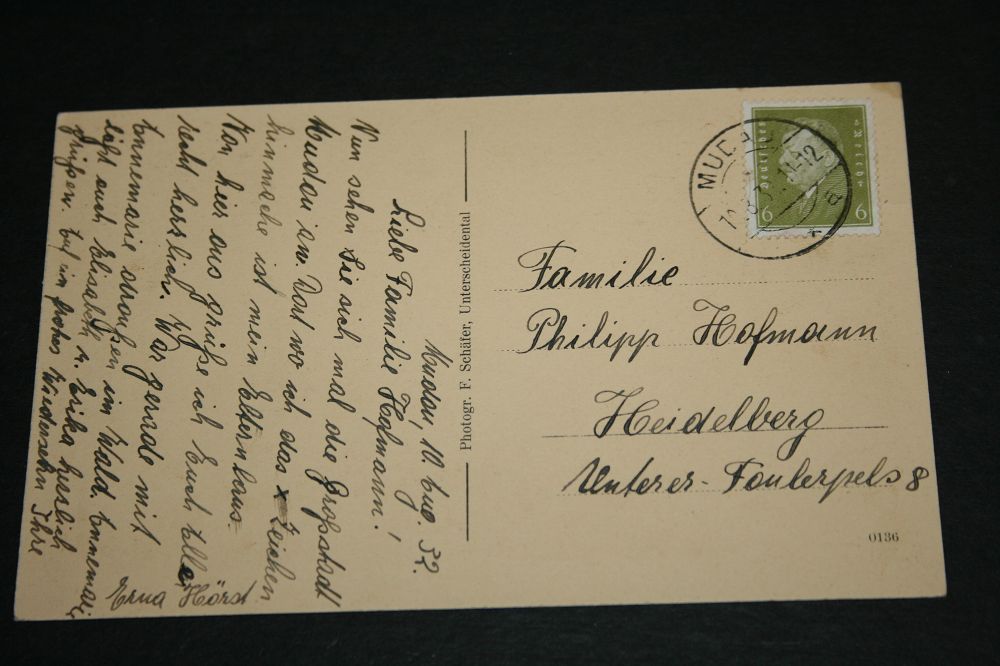 Mudau, 10. Aug. 32.
Liebe Familie Hofmann!
Nun sehen Sie sich mal die Großstadt
Mudau an. Dort wo ich das x Zeichen
hinmache ist mein Elternhaus.
Von hier aus grüße ich Euch Alle
recht herzlich. War gerade mit
Annemarie draußen im Wald. Annemarie
läßt auch Elisabeth u. Erika herzlich
grüßen. Auf ein frohes Wiedersehn Ihre
Erna Hörst
Photogr. F. Schäfer, Unterscheidental
Deutsches Reich
6 6
MUD
11-12
Familie
Philipp Hofmann
Heidelberg
Unterer-Faulerpelz 8
0136